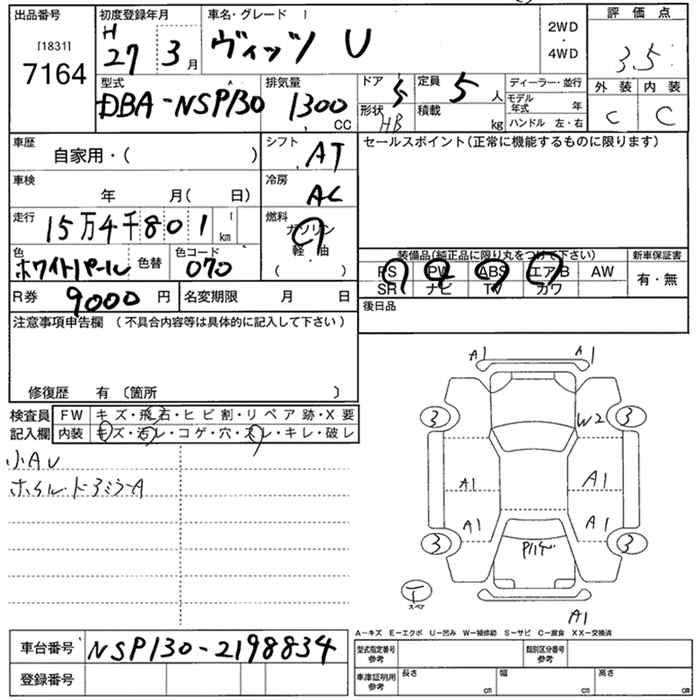 出品番号 初度登録年月 車名・グレード 評価点
[1831] H
7164 27 3月 ヴィッツ U 2WD・4WD 3.5
型式 排気量 ドア 定員 ディーラー・並行 外装 内装
DBA-NSP130 1300CC 5 5人 モデル年式 年 C C
形状 HB 積載 kg ハンドル 左・右
車歴 自家用・( ) シフト AT セールスポイント(正常に機能するものに限ります)
車検 年 月( 日) 冷房 AC
走行 15万4千801km 燃料 ガソリン
軽・油
( )
色 ホワイトパール 色替 色コード 070
装備品(純正品に限り丸をつけて下さい) 新車保証書
PS PW ABS エアB AW 有・無
SR ナビ TV カワ
R券 9000円 名変期限 月 日 後日品
注意事項申告欄 (不具合内容等は具体的に記入して下さい)
修復歴 有 〔箇所 〕
検査員 FW キズ・飛石・ヒビ割・リペア跡・X要
記入欄 内装 キズ・汚レ・コゲ・穴・スレ・キレ・破レ
小AU
ホイル・ドアミラーA
A1 A1
3 3
W2
A1 A1
A1 A1
3 3
スペア
A1
A−キズ E−エクボ U−凹み W−補修跡 S−サビ C−腐食 XX−交換済
車台番号 NSP130-2198834
型式指定番号 参考 類別区分番号 参考
登録番号
車庫証明用 参考 長さ cm 幅 cm 高さ cm